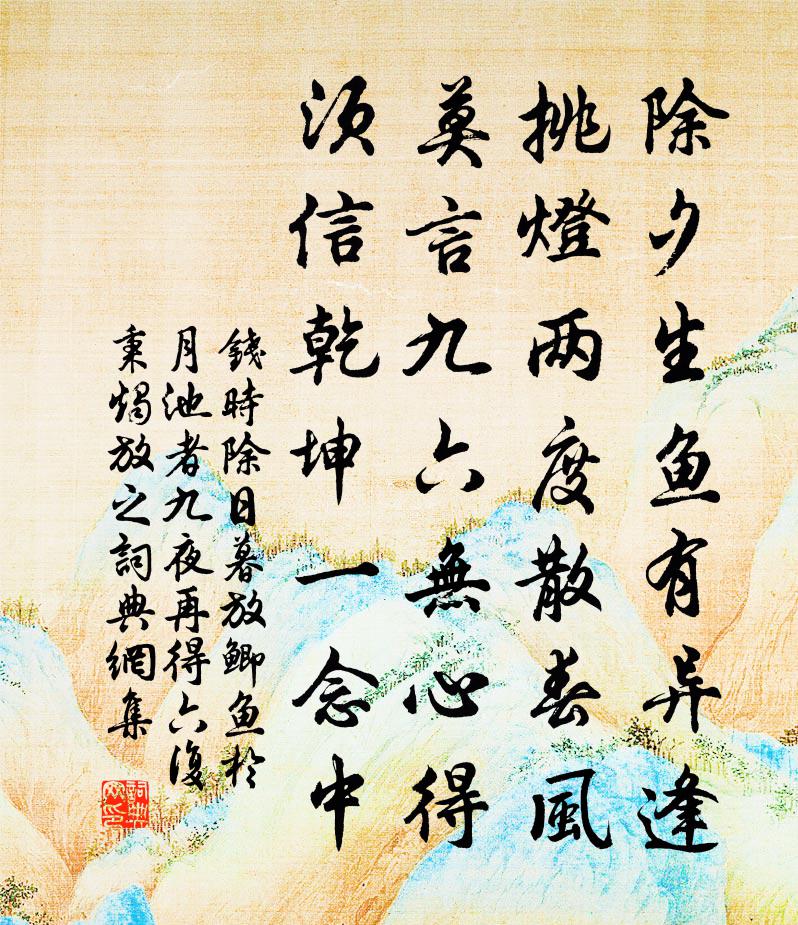 除夕生鱼有异逢
挑燈两度散春風
莫言九六無心得
须信乾坤一念中
錢時除日暮放鲫鱼於
月池者九夜再得六復
秉燭放之詞典網集
詞典网印